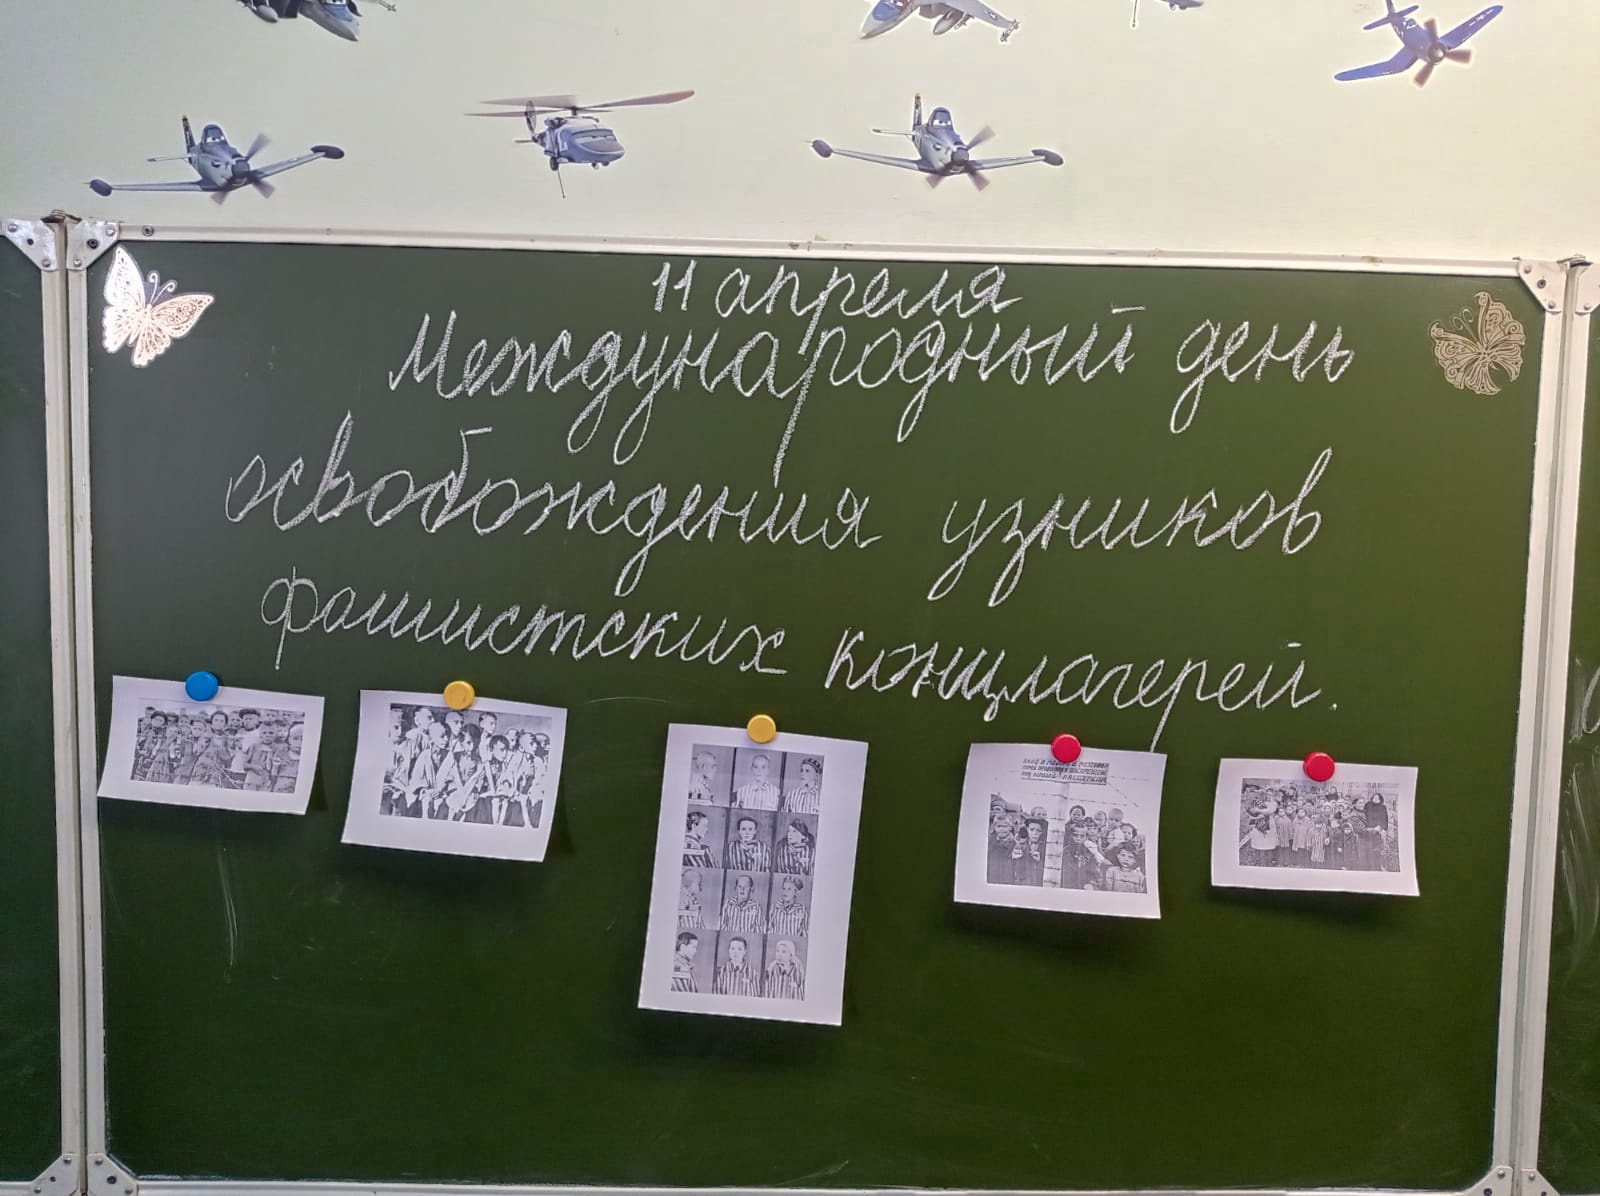 11 апреля
Международный день
освобождения узников
фашистских концлагерей.